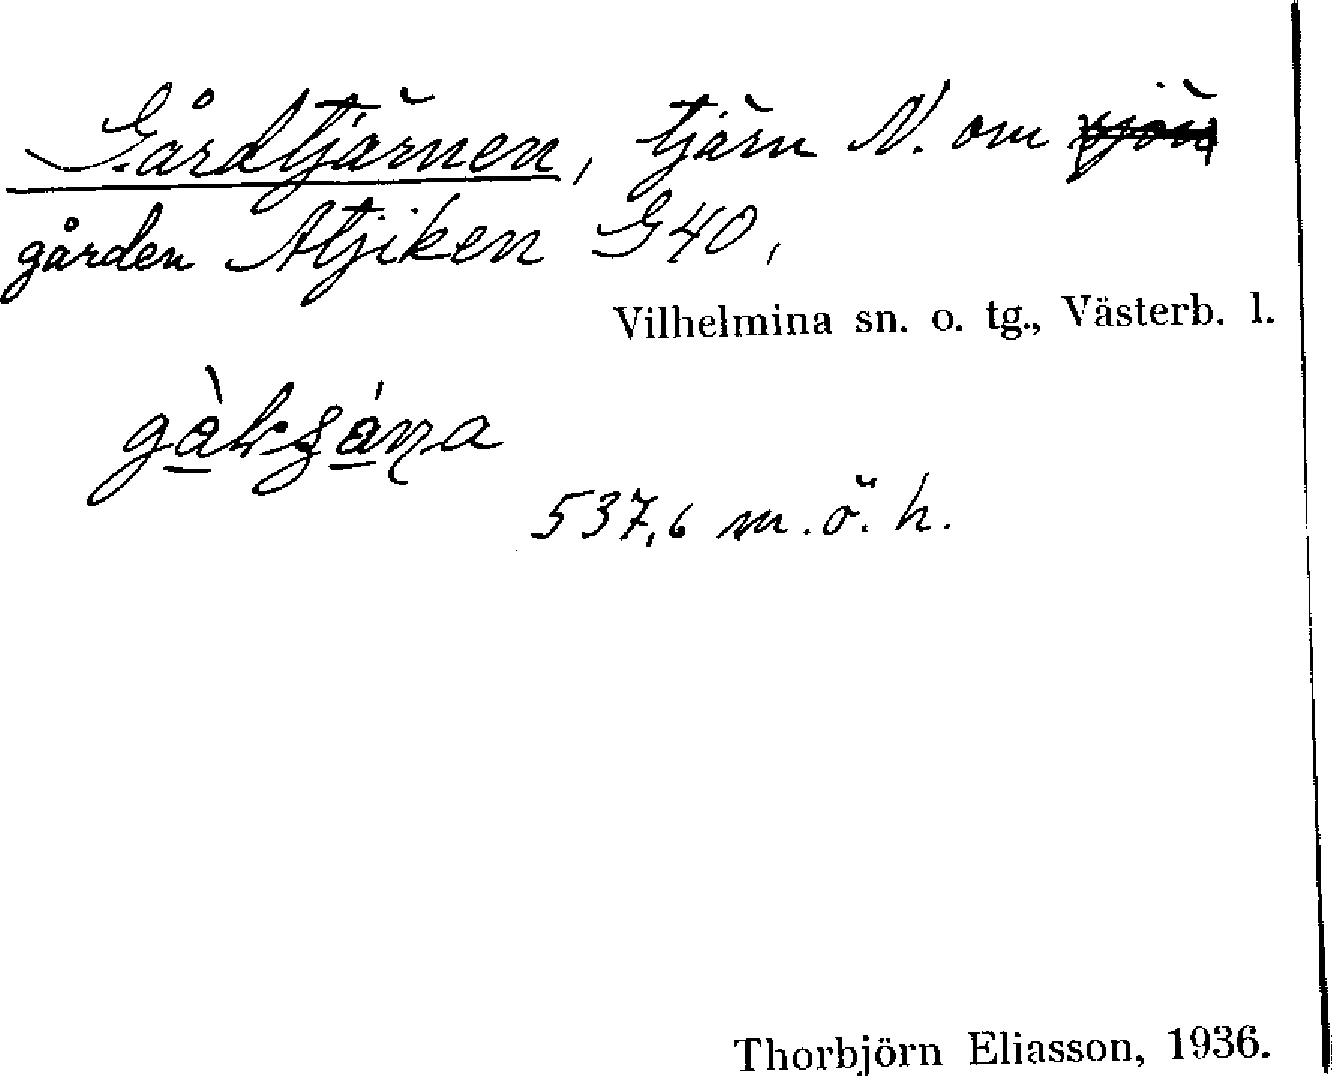 Gårdtjärnen, tjärn N. om
gården Atjiken G40,
Vilhelmina sn. o. tg., Västerb. l.
537,6 m.ö.h.
Thorbjörn Eliasson, 1936.